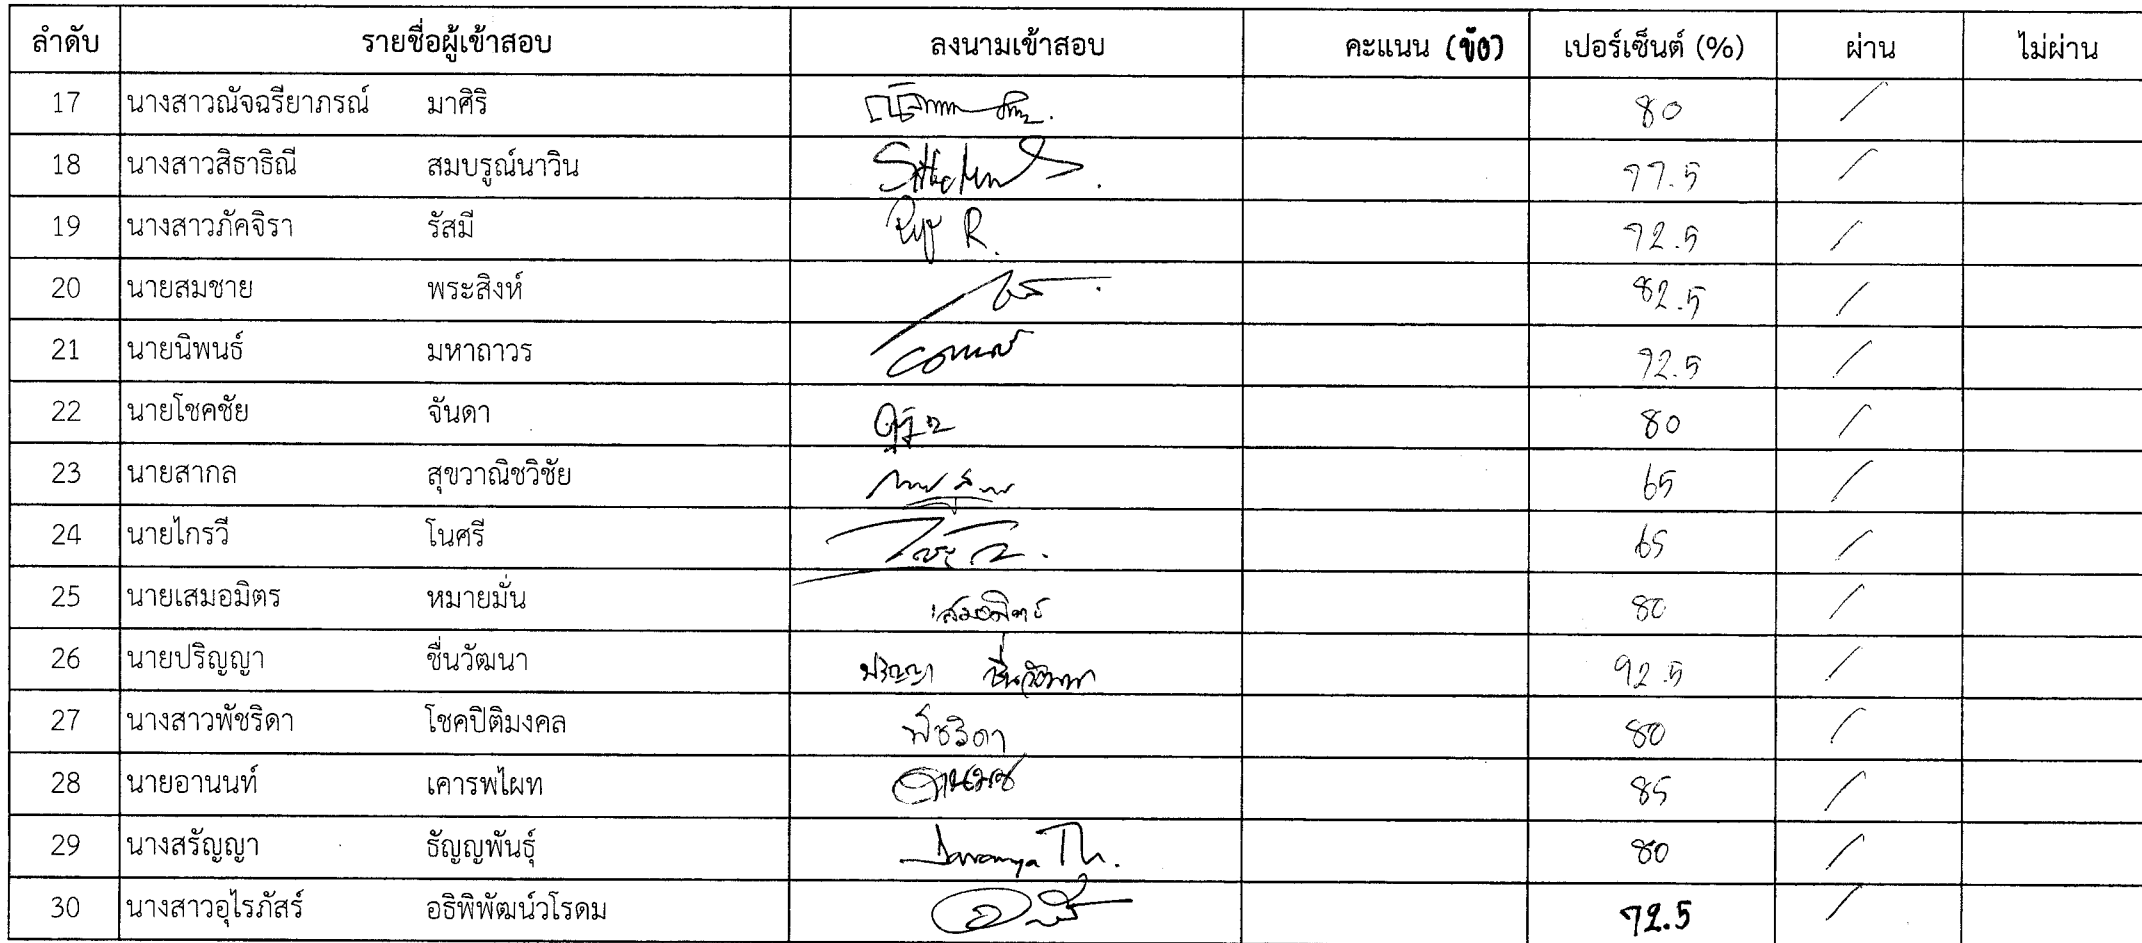 ลำดับ รายชื่อผู้เข้าสอบ ลงนามเข้าสอบ คะแนน (ข้อ) เปอร์เซ็นต์ (%) ผ่าน ไม่ผ่าน
17 นางสาวณัจฉรียาภรณ์ มาศิริ 80 /
18 นางสาวสิธาธิณี สมบรูณ์นาวิน 77.5 /
19 นางสาวภัคจิรา รัสมี R. 72.5 /
20 นายสมชาย พระสิงห์ 82.5 /
21 นายนิพนธ์ มหาถาวร 72.5 /
22 นายโชคชัย จันดา 80 /
23 นายสากล สุขวาณิชวิชัย 65 /
24 นายไกรวี โนศรี 65 /
25 นายเสมอมิตร หมายมั่น เสมอมิตร 80 /
26 นายปริญญา ชื่นวัฒนา ปริญญา ชื่นวัฒนา 92.5 /
27 นางสาวพัชริดา โชคปิติมงคล พัชริดา 80 /
28 นายอานนท์ เคารพไผท 85 /
29 นางสรัญญา ธัญญพันธุ์ Saranya Th. 80 /
30 นางสาวอุไรภัสร์ อธิพิพัฒน์วโรดม 72.5 /